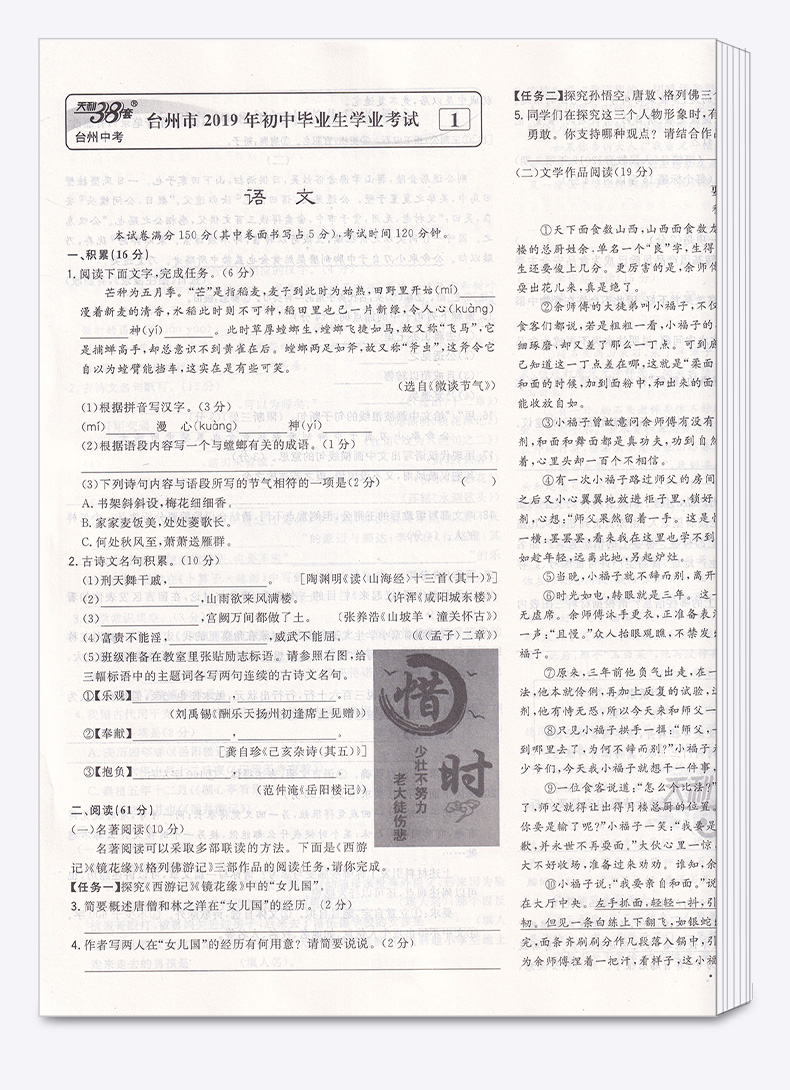 天利38套®
台州中考
台州市2019年初中毕业生学业考试 1
语 文
本试卷满分150分(其中卷面书写占5分),考试时间120分钟。
一、积累(16分)
1.阅读下面文字,完成任务。(6分)
芒种为五月季。“芒”是指稻麦,麦子到此时为始熟,田野里开始(mí)
漫着新麦的清香,水稻此时则不可种,稻田里也已一片新绿,令人心(kuàng)
神(yí) 。此时草厚螳螂生,螳螂飞捷如马,故又称“飞马”,它
是捕蝉高手,却总意识不到黄雀在后。螳螂两足如斧,故又称“斧虫”,这斧令它
自以为螳臂能挡车,这实在是有些可笑。
(选自《微谈节气》)
(1)根据拼音写汉字。(3分)
(mí) 漫 心(kuàng) 神(yí)
(2)根据语段内容写一个与螳螂有关的成语。(1分)
(3)下列诗句内容与语段所写的节气相符的一项是(2分) ( )
A.书架斜斜设,梅花细细香。
B.家家麦饭美,处处菱歌长。
C.何处秋风至,萧萧送雁群。
2.古诗文名句积累。(10分)
(1)刑天舞干戚, 。 [陶渊明《读〈山海经〉十三首(其十)》]
(2) ,山雨欲来风满楼。 (许浑《咸阳城东楼》)
(3) ,宫阙万间都做了土。 (张养浩《山坡羊·潼关怀古》)
(4)富贵不能淫, ,威武不能屈。 (《〈孟子〉二章》)
(5)班级准备在教室里张贴励志标语。请参照右图,给
三幅标语中的主题词各写两句连续的古诗文名句。
①【乐观】 , 。
(刘禹锡《酬乐天扬州初逢席上见赠》)
②【奉献】 , 。
[龚自珍《己亥杂诗(其五)》]
③【抱负】 , 。
(范仲淹《岳阳楼记》)
惜时
少壮不努力
老大徒伤悲
二、阅读(61分)
(一)名著阅读(10分)
名著阅读可以采取多部联读的方法。下面是《西游
记》《镜花缘》《格列佛游记》三部作品的阅读任务,请你完成。
【任务一】探究《西游记》《镜花缘》中的“女儿国”,
3.简要概述唐僧和林之洋在“女儿国”的经历。(2分)
4.作者写两人在“女儿国”的经历有何用意?请简要说说。(2分)
【任务二】探究孙悟空、唐敖、格列佛三
5.同学们在探究这三个人物形象时,有
勇敢。你支持哪种观点?请结合作品
(二)文学作品阅读(19分)
①天下面食数山西,山西面食数龙
楼的总厨姓余,单名一个“良”字,生得
生还要俊上几分。更厉害的是,余师傅
耍出花儿来,真是绝了。
②余师傅的大徒弟叫小福子,不仅
食客们都说,若是粗粗一看,小福子的
细琢磨,却又差了那么一丁点。可到底
已知道这一丁点差在哪,这就是“柔面
和面的时候,加到面粉中,和出来的面
能收放自如。
③小福子曾故意问余师傅有没有
剂,和面和舞面都是真功夫,功到自然
着,心里头却一百个不相信。
④有一次小福子路过师父的房间
之后又小心翼翼地放进柜子里,锁好
剂,心想:“师父果然留着一手。这是怕
一横:罢罢罢,看来我在这里也学不到
如趁年轻,远离此地,另起炉灶。
⑤当晚,小福子就不辞而别,离开
⑥时光如电,转眼就是三年。这一
无虚席。余师傅泳手更衣,正准备表演
一声:“且慢。”众人抬眼观瞧,不禁发
福子。
⑦原来,三年前他负气出走,在一
法,他本就伶俐,再加上反复的试验,
剂,他有恃无恐,所以今天来和师父一
⑧只见小福子拱手一揖:“师父,一
到哪里去了,为何不辞而别?”小福子
少爷们,今天我小福子就想干一件事,
⑨一位食客说道:“怎么个比法?”
了,师父就得让出得月楼总厨的位置
你要是输了呢?”小福子一笑:“我要是
歉,并永世不再耍面。”大伙心里一惊,
大不好收场,准备过来劝劝。谁知,余
⑩小福子说:“我要亲自和面。”说
在大厅中央。左手抓面,轻轻一抖,引
韧。但见一条白练上下翻飞,如银蛇
完,面条齐刷刷分作几段落入锅中,引
为余师傅捏着一把汗,看样子,这小福